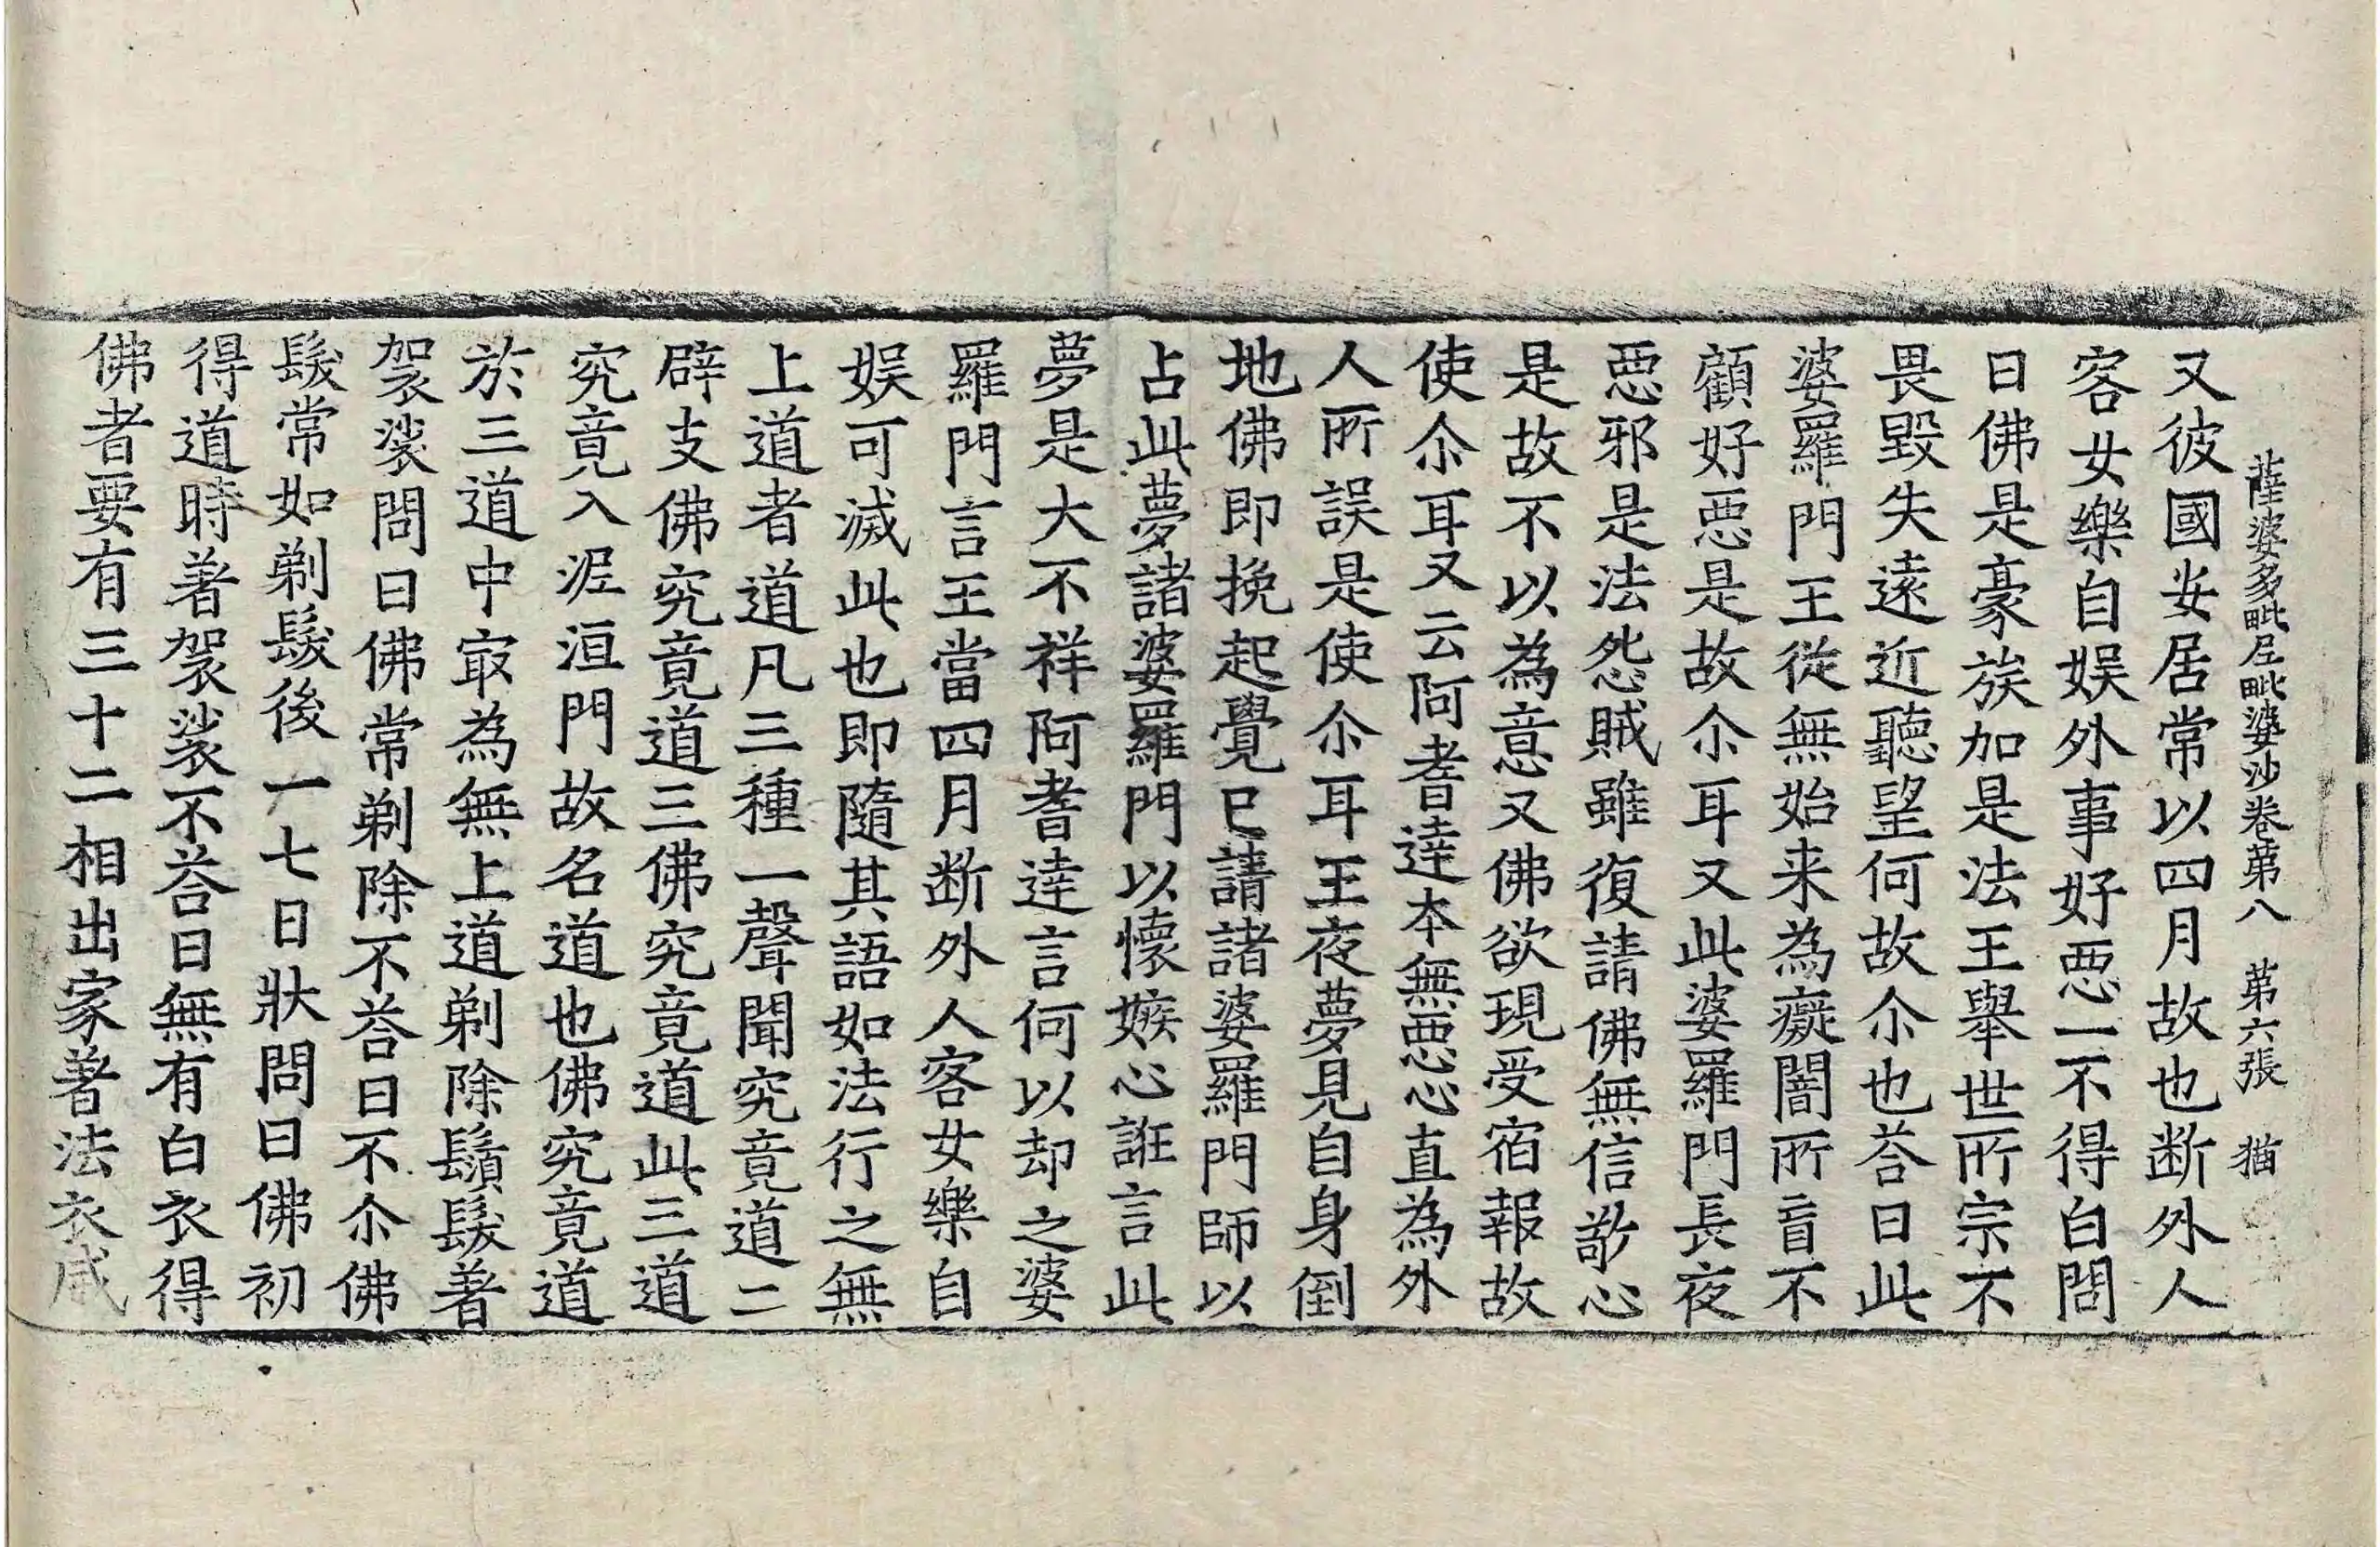 薩婆多毗尼毗婆沙卷苐八　苐六張　猫
又彼國安居常以四月故也断外人
客女樂自娱外事好惡一不得白問
曰佛是豪族加是法王舉世所宗不
畏毀失遠近聽望何故尒也荅曰此
婆羅門王從無始来為癡闇所盲不
顧好惡是故尒耳又此婆羅門長夜
惡邪是法怨賊雖復請佛無信敬心
是故不以為意又佛欲現受宿報故
使尒耳又云阿耆達本無惡心直為外
人所誤是使尒耳王夜夢見自身倒
地佛即挽起覺已請諸婆羅門師以
占此夢諸婆羅門以懷嫉心誑言此
夢是大不祥阿耆達言何以却之婆
羅門言王當四月断外人客女樂自
娱可滅此也即隨其語如法行之無
上道者道凡三種一聲聞究竟道二
辟支佛究竟道三佛究竟道此三道
究竟入泥洹門故名道也佛究竟道
於三道中㝡為無上道剃除鬚髮著
袈裟問曰佛常剃除不荅曰不尒佛
髮常如剃髮後一七日狀問曰佛初
得道時著袈裟不荅曰無有白衣得
佛者要有三十二相出家著法衣威